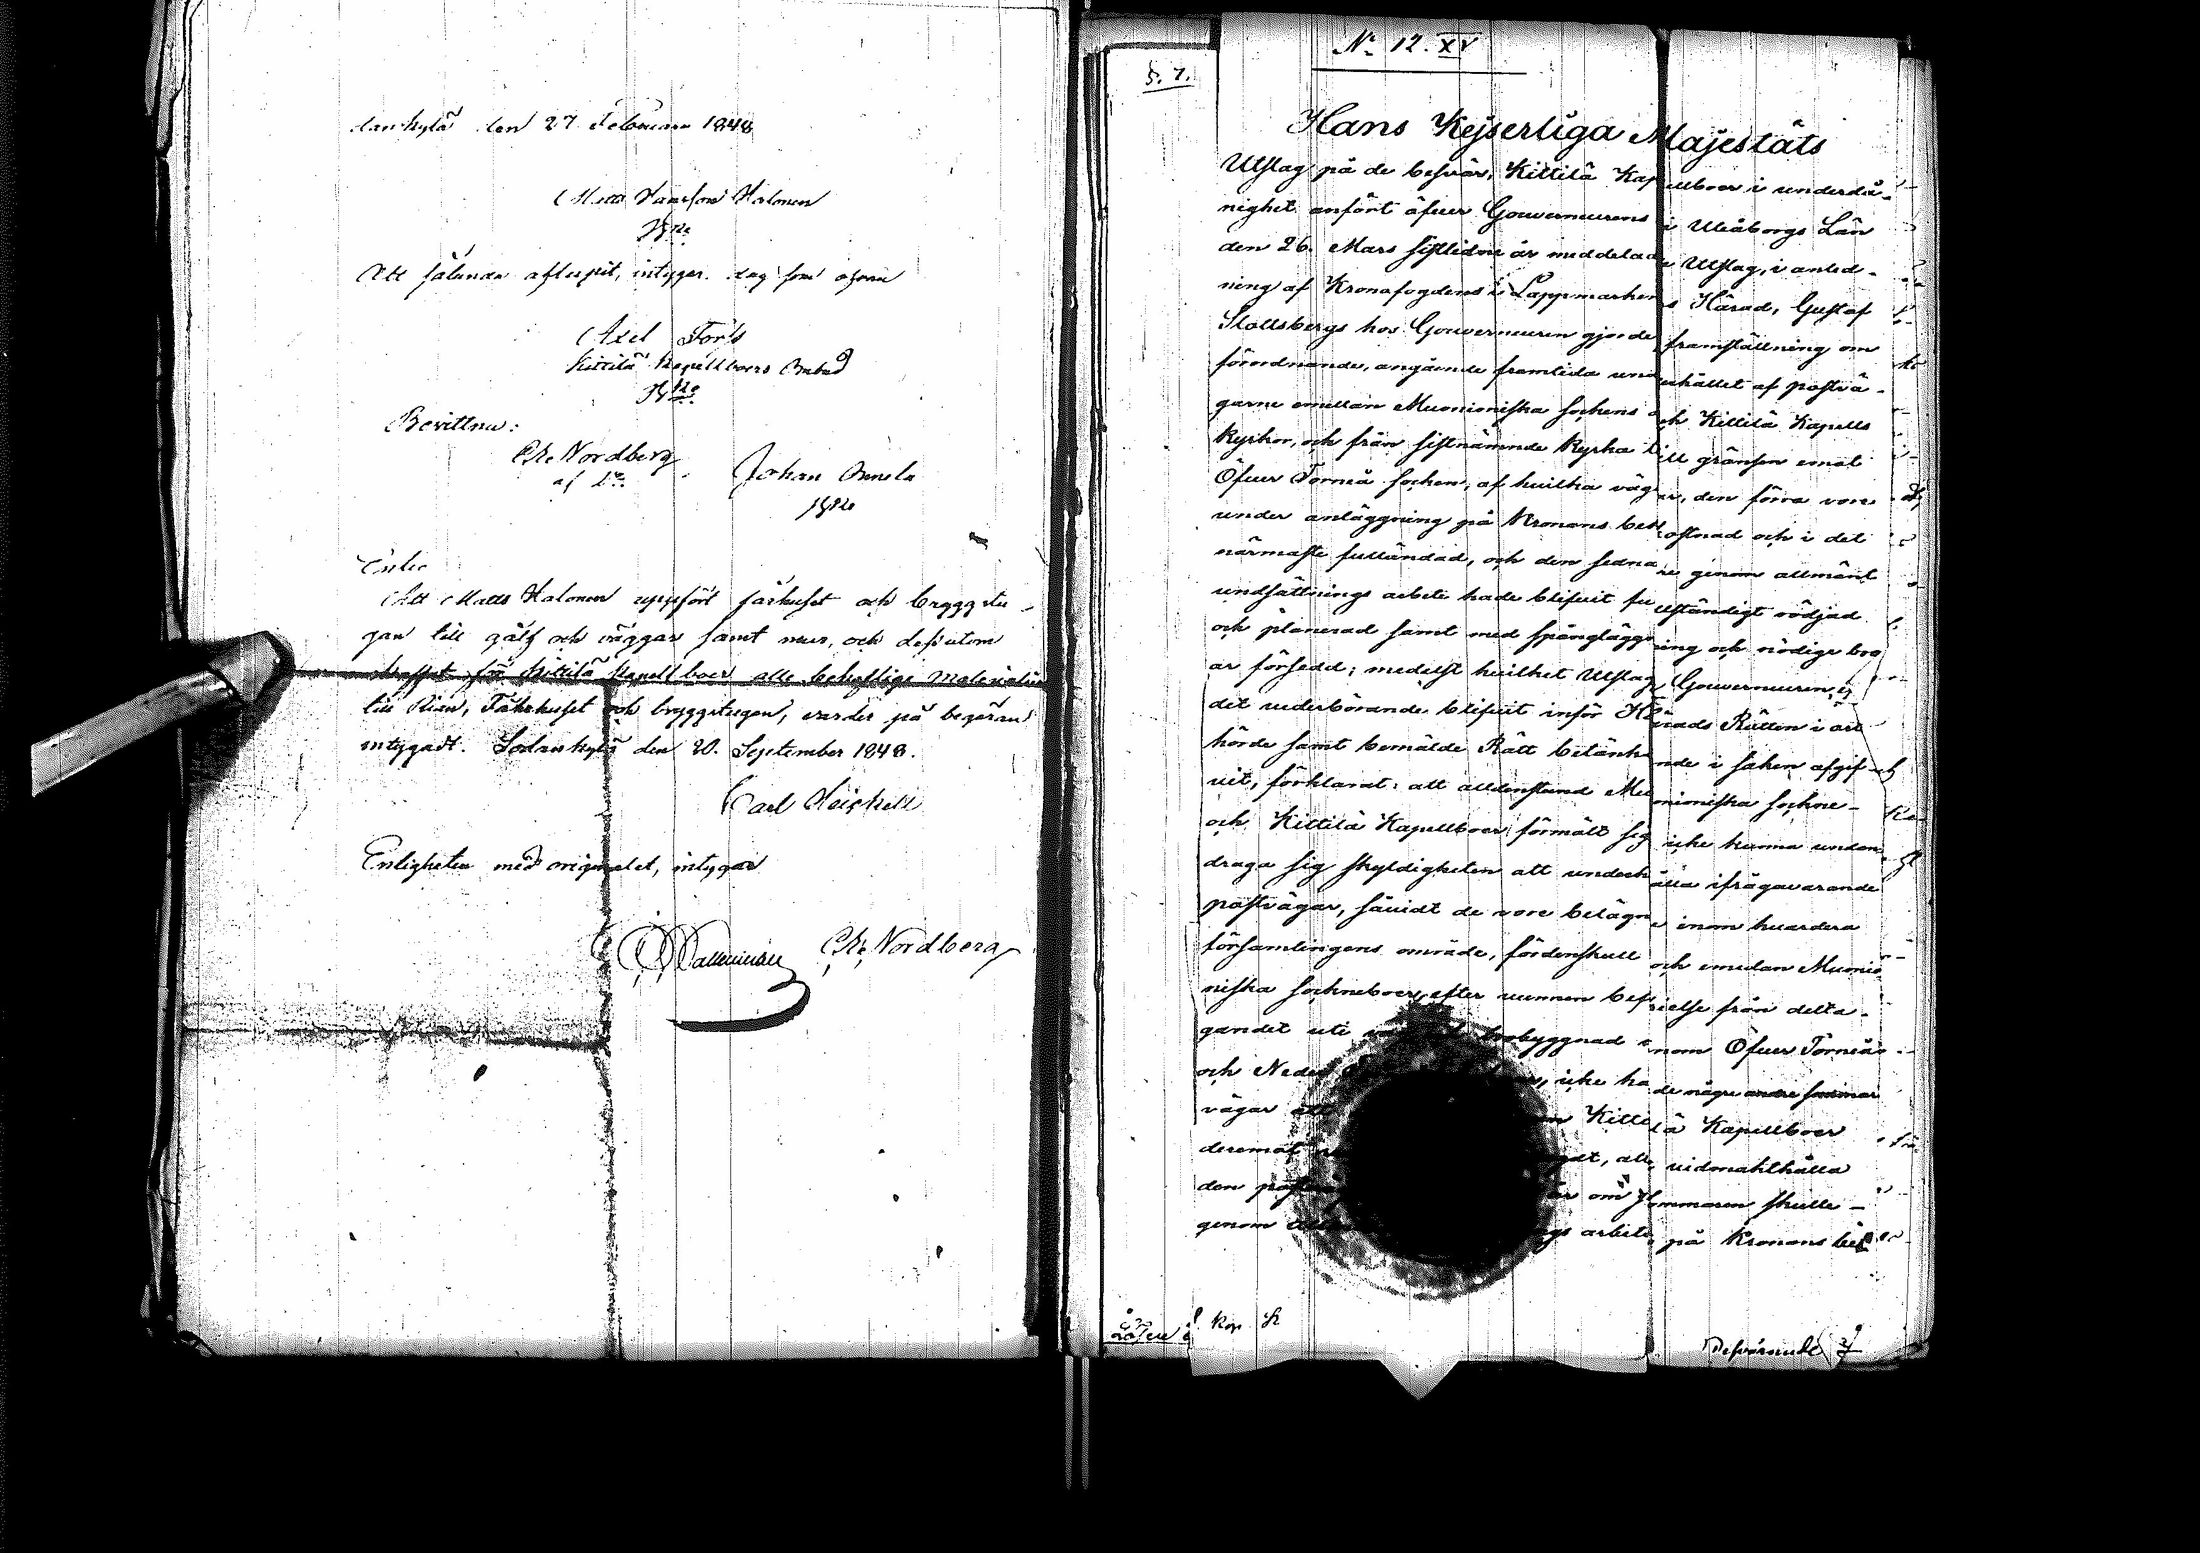 dankylä den 27 Februari 1848
Matts Hansson Halonen
Att sålunda aflupit, intygar. dag som ofvan
Axel Fors
Kittilä Kapellboers Ombud
Bevittna:
Nordberg
Johan Onnela
Att Matts Halonen uppfört fårhuset och bryggstu-
gan till golf och väggar samt mur, och dessutom
skaffat från Kittilä Kapellboer alla behöflige materialier
till Rian, Fårhuset och bryggstugan, varder på begäran
intygadt. Sodankylä den 20. September 1848.
Carl Heickell
Enligheten med originalet, intygar
Nordberg
№ 12. XV
§. 7.
Hans Kejserliga Majestäts
Utslag på de besvär, Kittilä Kapellboer i underdå-
nighet anfört öfver Gouverneurens i Uleåborgs Län
den 26. Mars sistlidne år meddelade Utslag, i anled-
ning af Kronofogdens i Lappmarkens Härad, Gustaf
Slottsbergs hos Gouverneuren gjorde framställning om
förordnande, angående framtida underhållet af postvä-
garne emellan Muonioniska sockens och Kittilä Kapells
Kyrkor, och från sistnämnde Kyrka till gränsen emot
Öfver Torneå socken, af hvilka vägar, den förra vore
under anläggning på Kronans bekostnad och i det
närmaste fulländad, och den sednare genom allmänt
undsättnings arbete hade blifvit fullständigt rödjad
och planerad samt med spångläggning och nödige bro
ar försedd; medelst hvilket Utslag Gouverneuren,
det vederbörande blifvit inför Härads Rätten i ort
hörde samt bemälde Rätt betänkande i saken afgif-
vit, förklarat: att alldenstund Muonioniska sockne-
och Kittilä Kapellboer förmält sig icke kunna undan-
draga sig skyldigheten att underhålla ifrågavarande
postvägar, såvidt de vore belägne inom hvardera
församlingens område, fördenskull och emedan Muonio
niska sockneboer, efter vunnen befrielse från delta-
gandet uti brobyggnad inom Öfver Torneå
och Neder icke hade några andra
vägar att Kittilä Kapellboer
deremot vidmakthålla
den om sommaren skulle
genom arbete på Kronans